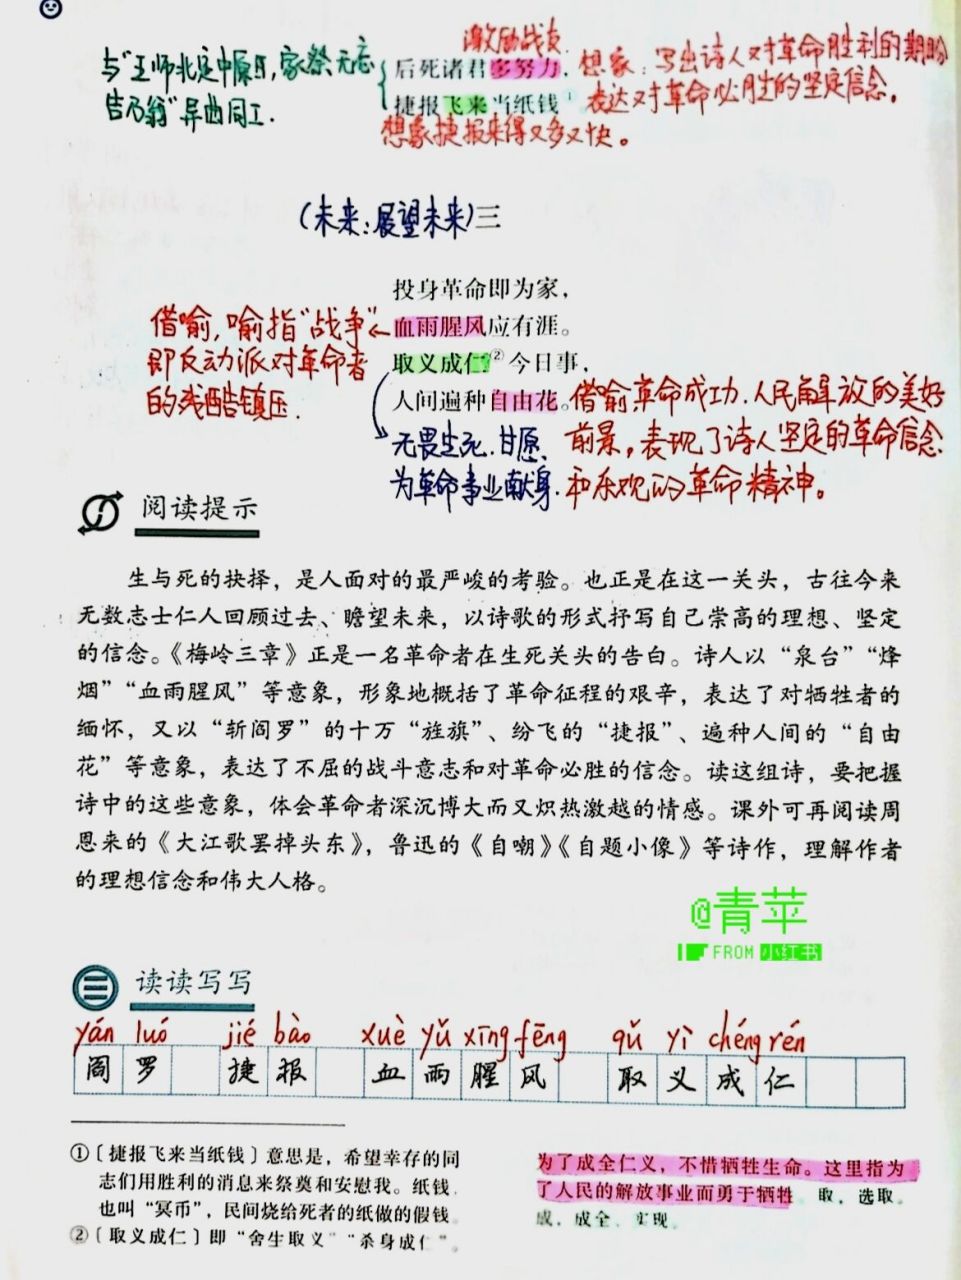 激励战友.
与"王师北定中原日,家祭无忘
告乃翁"异曲同工.
后死诸君多努力,
捷报飞来当纸钱①
想象:写出诗人对革命胜利的期盼
表达对革命必胜的坚定信念。
想象捷报来得又多又快。
(未来:展望未来)三
投身革命即为家,
血雨腥风应有涯。
取义成仁②今日事,
人间遍种自由花。
借喻,喻指"战争"
即反动派对革命者
的残酷镇压.
借喻革命成功.人民解放的美好
前景,表现了诗人坚定的革命信念
和乐观的革命精神。
无畏生死.甘愿
为革命事业献身.
阅读提示
生与死的抉择,是人面对的最严峻的考验。也正是在这一关头,古往今来
无数志士仁人回顾过去、瞻望未来,以诗歌的形式抒写自己崇高的理想、坚定
的信念。《梅岭三章》正是一名革命者在生死关头的告白。诗人以“泉台”“烽
烟”“血雨腥风”等意象,形象地概括了革命征程的艰辛,表达了对牺牲者的
缅怀,又以“斩阎罗”的十万“旌旗”、纷飞的“捷报”、遍种人间的“自由
花”等意象,表达了不屈的战斗意志和对革命必胜的信念。读这组诗,要把握
诗中的这些意象,体会革命者深沉博大而又炽热激越的情感。课外可再阅读周
恩来的《大江歌罢掉头东》,鲁迅的《自嘲》《自题小像》等诗作,理解作者
的理想信念和伟大人格。
@青苹
FROM 小红书
读读写写
yán luó jié bào xuè yǔ xīng fēng qǔ yì chéng rén
阎罗 捷报 血雨腥风 取义成仁
①〔捷报飞来当纸钱〕意思是,希望幸存的同
志们用胜利的消息来祭奠和安慰我。纸钱,
也叫“冥币”,民间烧给死者的纸做的假钱。
②〔取义成仁〕即“舍生取义”“杀身成仁”。
为了成全仁义,不惜牺牲生命。这里指为
了人民的解放事业而勇于牺牲。取,选取。
成,成全、实现。